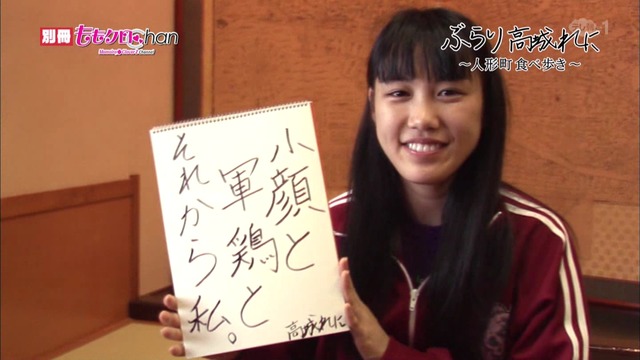 別冊ももクロChan
Momoiro Clover Z Channel
ぶらり高城れに
～人形町食べ歩き～
小顔と
軍鶏と
それから私。
高城れに